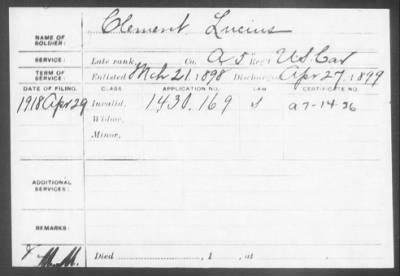 NAME OF SOLDIER: Clement, Lucius
SERVICE: Late rank, Co. A 5" Reg't U.S. Cav
TERM OF SERVICE: Enlisted Mch 21, 1898 Discharged Apr 27, 1899
DATE OF FILING. CLASS. APPLICATION NO. LAW CERTIFICATE NO.
1918 Apr 29 Invalid, 1430.169 a7-14-36
Widow,
Minor,
ADDITIONAL SERVICES:
REMARKS:
Died , 1 , at